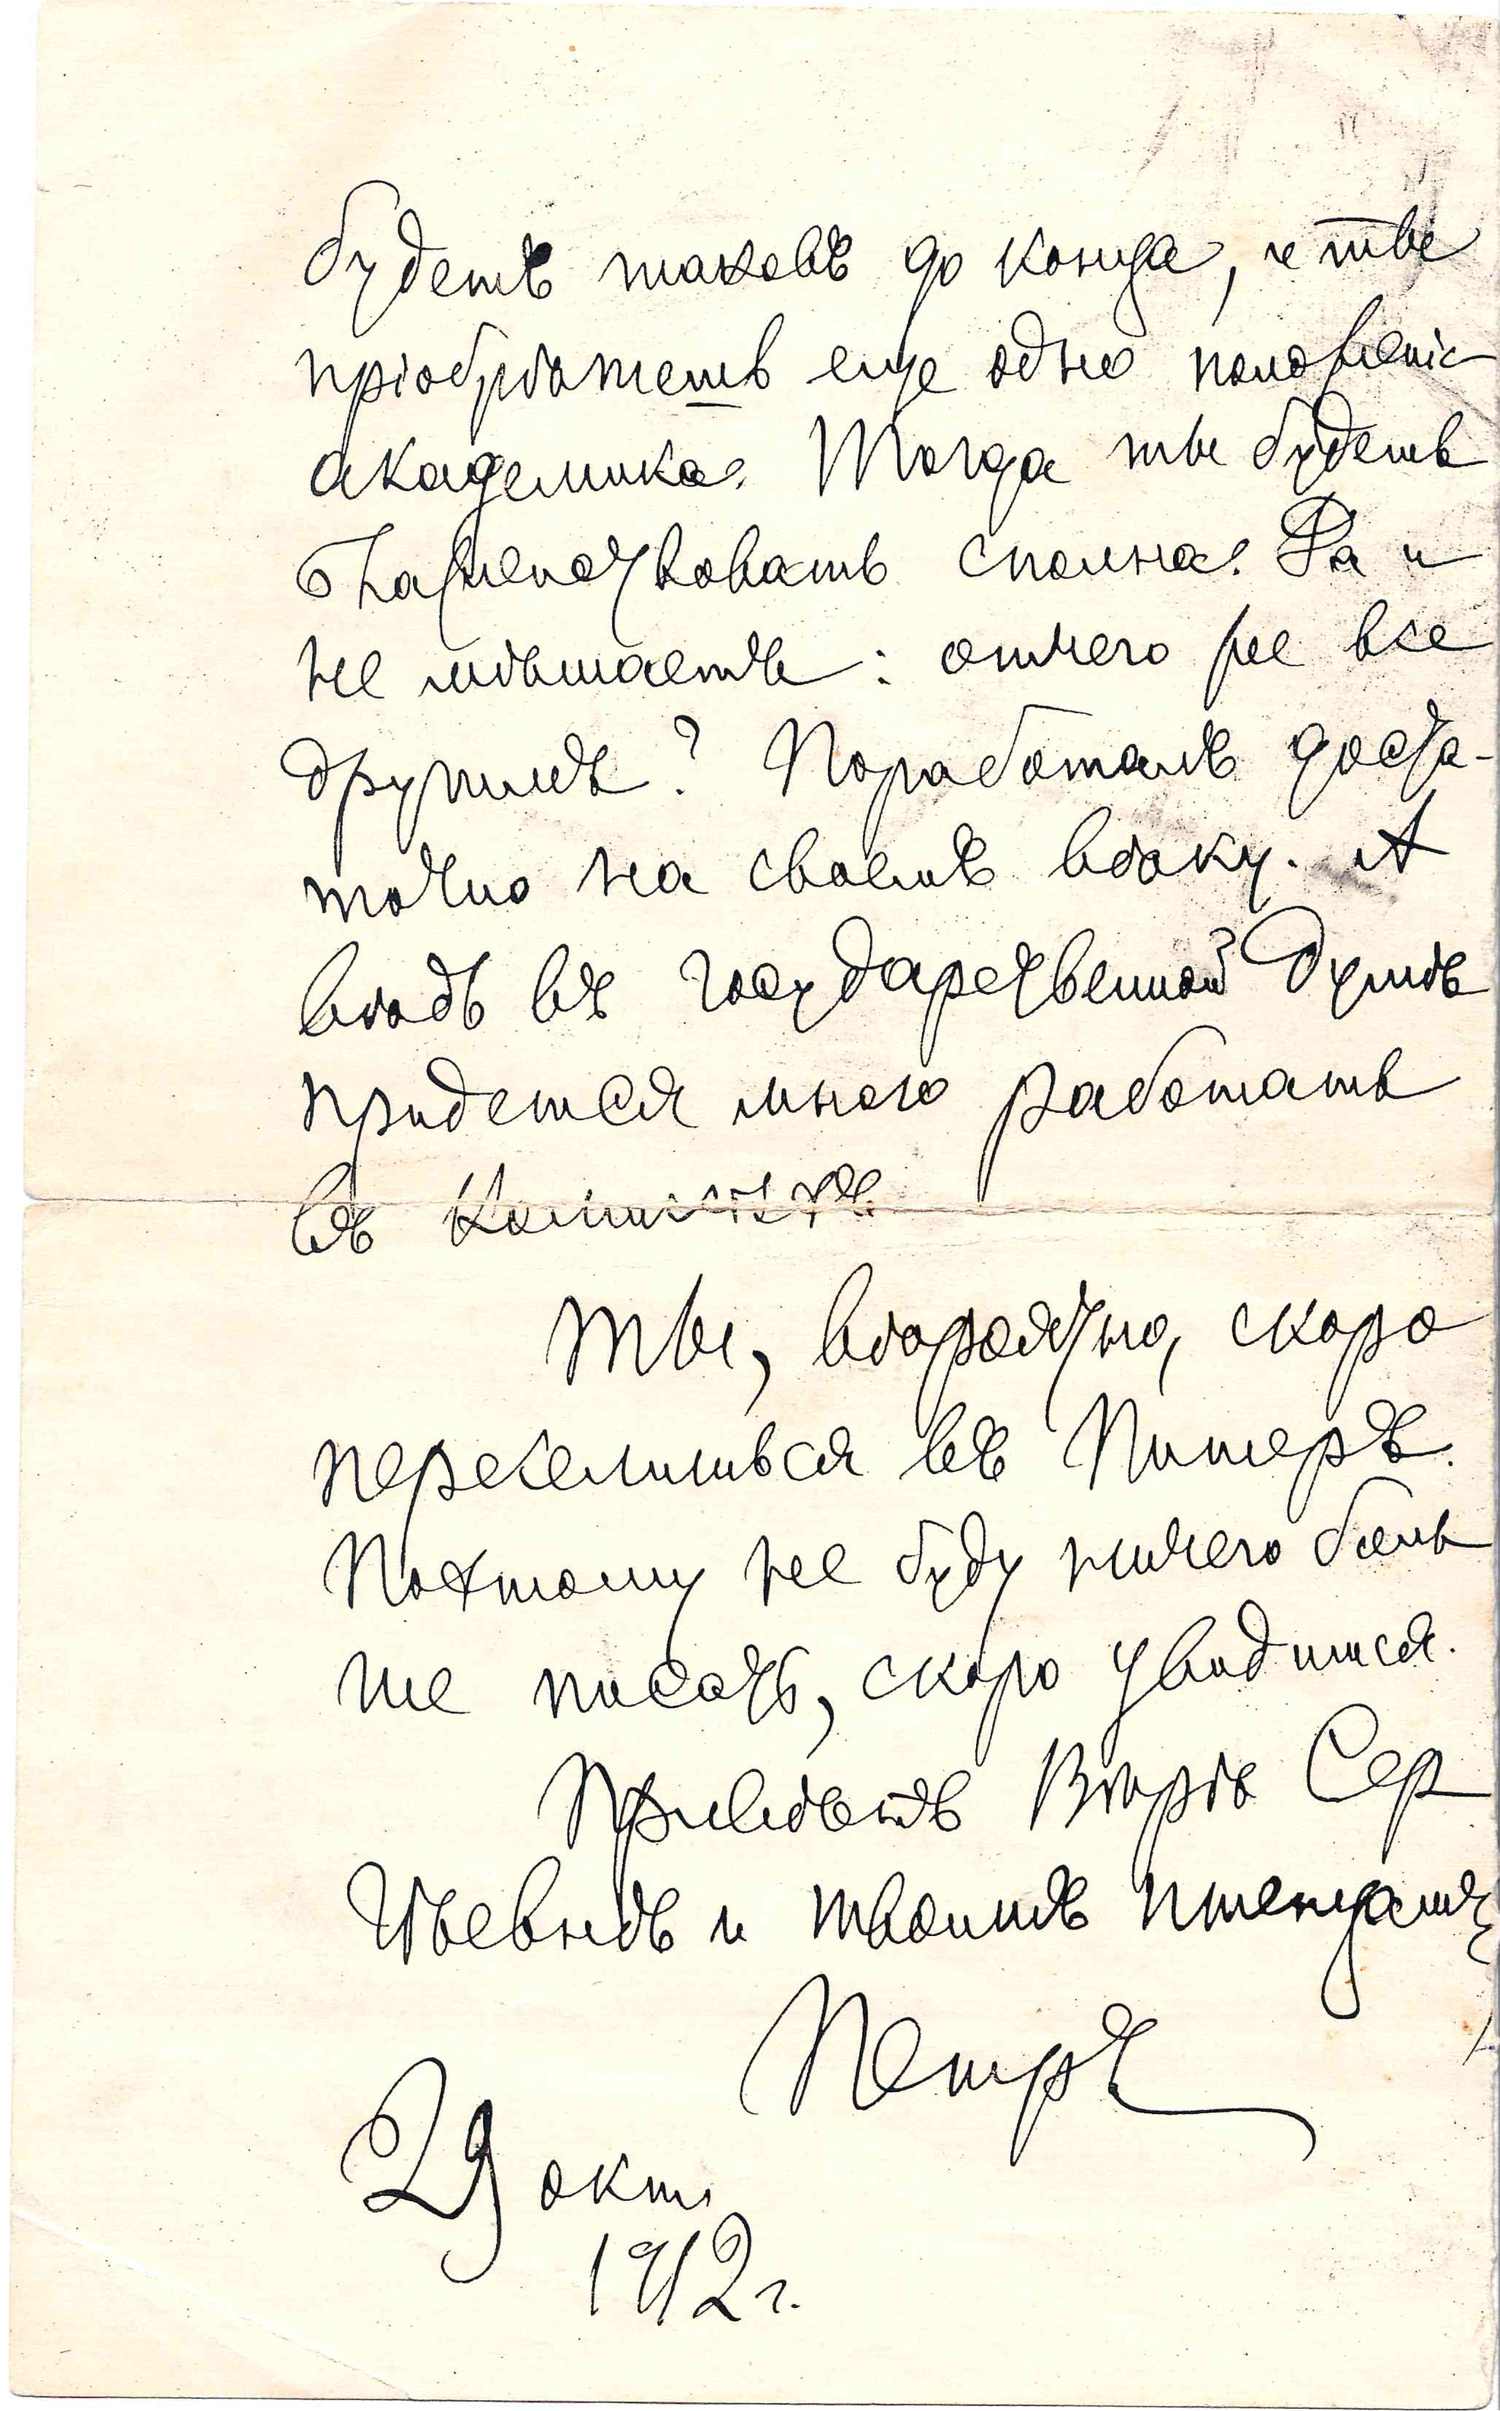 будетъ таковъ до конца, и ты
пріобрѣтешь еще одно положеніе
академика. Тогда ты будешь
благоденствовать сполна. Да и
не мѣшаетъ: отчего же все
другимъ? Поработалъ доста-
точно на своемъ вѣку. А
вѣдь въ Государственной Думѣ
придется много работать
въ
Ты, вѣроятно, скоро
переселишься въ Питеръ.
Поэтому не буду ничего боль
ше писать, скоро увидимся.
Привѣтъ Вѣрѣ Сер
гѣевнѣ и твоимъ птенцамъ
Петръ
29 окт.
1912 г.